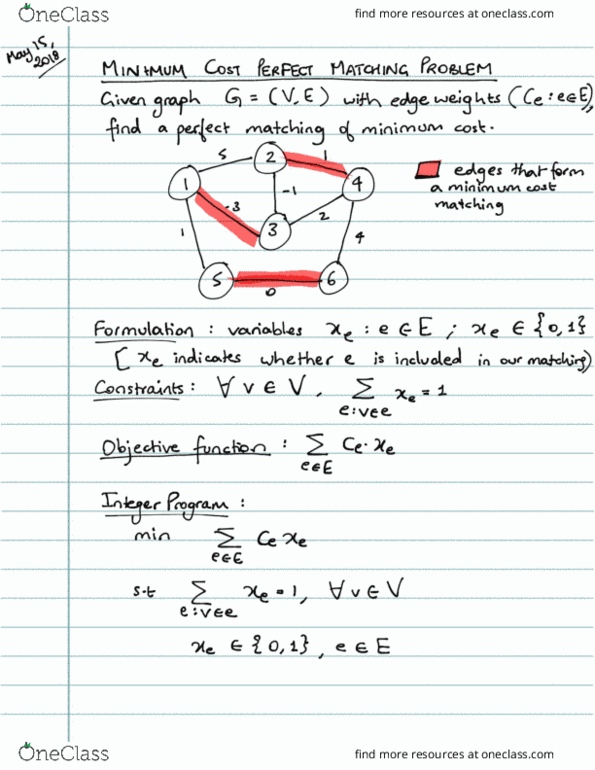 OneClass
find more resources at oneclass.com
May 15, 2018
MINIMUM COST PERFECT MATCHING PROBLEM
Given graph G = (V, E) with edge weights (Ce : e∈E),
find a perfect matching of minimum cost.
5
2
1
1
4
edges that form
a minimum cost
matching
-3
-1
3
2
1
4
5
0
6
Formulation : variables xe : e ∈ E ; xe ∈ {0,1}
[xe indicates whether e is included in our matching)
Constraints : ∀ v ∈ V, ∑ xe = 1
e:v∈e
Objective function : ∑ Ce · xe
e∈E
Integer Program :
min ∑ Ce xe
e∈E
s.t ∑ xe = 1, ∀ v ∈ V
e:v∈e
xe ∈ {0,1}, e ∈ E
OneClass
find more resources at oneclass.com